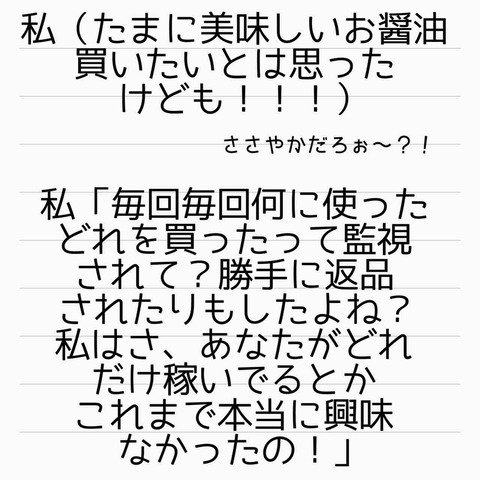 私（たまに美味しいお醤油
買いたいとは思った
けども！！！）
ささやかだろぉ〜？！
私「毎回毎回何に使った
どれを買ったって監視
されて？勝手に返品
されたりもしたよね？
私はさ、あなたがどれ
だけ稼いでるとか
これまで本当に興味
なかったの！」